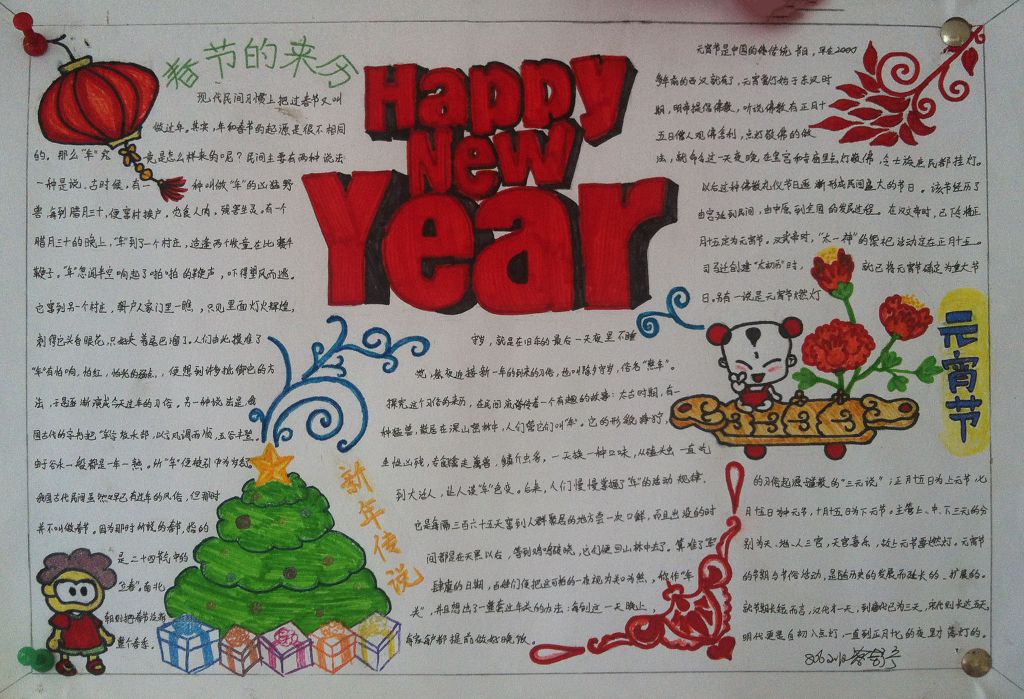 春节的来历
Happy
New
Year
现代民间习惯上把过春节又叫
做过年。其实,年和春节的起源是很不相同
的。那么"年"究竟是怎么样来的呢?民间主要有两种说法
一种是说,古时候,有一种叫做"年"的凶猛野
兽,每到腊月三十,便窜村挨户,
有一个
腊月三十的晚上,"年"到了一个村庄,适逢两个牧童在比赛牛
鞭子。"年"忽闻半空响起了啪啪的鞭声,吓得望风而逃。
它窜到另一个村庄,
只见里面灯火辉煌,
刺得它头昏眼花,只好夹着尾巴溜了。人们由此摸准了
"年"有怕响,怕红,怕光的弱点,便想到许多抵御它的方
法,于是逐渐演成今天过年的习俗。另一种说法是,我
国古代的字书把"年"字放禾部,以示风调雨顺,五谷丰登。
由于谷禾一般都是一年一熟。所"年"便被引申为岁名
我国古代民间虽然早已有过年的风俗,但那时
并不叫做春节。因为那时所说的春节,指的
是二十四节气中的
"立春"。南北
整个春季。
新年传说
守岁,就是在旧年的最后一天夜里不睡
觉,熬夜迎接新一年的到来的习俗,也叫除夕守岁,俗名"熬年"。
探究这个习俗的来历,在民间流传着一个有趣的故事:太古时期,有一
种猛兽,散居在深山密林中,人们管它们叫"年"。它的形貌狰狞,
生性凶残,专食飞禽走兽、鳞介虫豸,一天换一种口味,从磕头虫一直吃
到大活人,让人谈"年"色变。后来,人们慢慢掌握了"年"的活动规律,
它是每隔三百六十五天窜到人群聚居的地方尝一次口鲜,而且出没的时
间都是在天黑以后,等到鸡鸣破晓,它们便回山林中去了。算准了"年"
肆虐的日期,百姓们便把这可怕的一夜视为关口来熬,称作"年
关",并且想出了一整套过年关的办法:每到这一天晚上,
每家每户都提前做好晚饭。
元宵节
元宵节是中国的传统节日,早在2000
多年前的西汉就有了,元宵赏灯始于东汉时
期,明帝提倡佛教,听说佛教有正月十
五日僧人观佛舍利,点灯敬佛的做
法,就命令这一天夜晚在皇宫和寺庙里点灯敬佛,令士族庶民都挂灯。
以后这种佛教礼仪节日逐渐形成民间盛大的节日。该节经历了
由宫廷到民间,由中原到全国的发展过程。在汉文帝时,已下令将正
月十五定为元宵节。汉武帝时,"太一神"的祭祀活动定在正月十五。
司马迁创建"太初历"时,就已将元宵节确定为重大节
日。另有一说是元宵节燃灯
的习俗起源于道教的"三元说";正月十五日为上元节,七
月十五日为中元节,十月十五日为下元节。主管上、中、下三元的分
别为天、地、人三官,天官喜乐,故上元节要燃灯。元宵节
的节期与节俗活动,是随历史的发展而延长的、扩展的。
就节期长短而言,汉代才一天,到唐代已为三天,宋代则长达五天,
明代更是自初八点灯,一直到正月十七的夜里才落灯的。